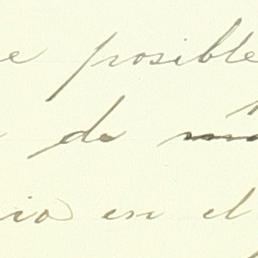 e posible
de
io en el